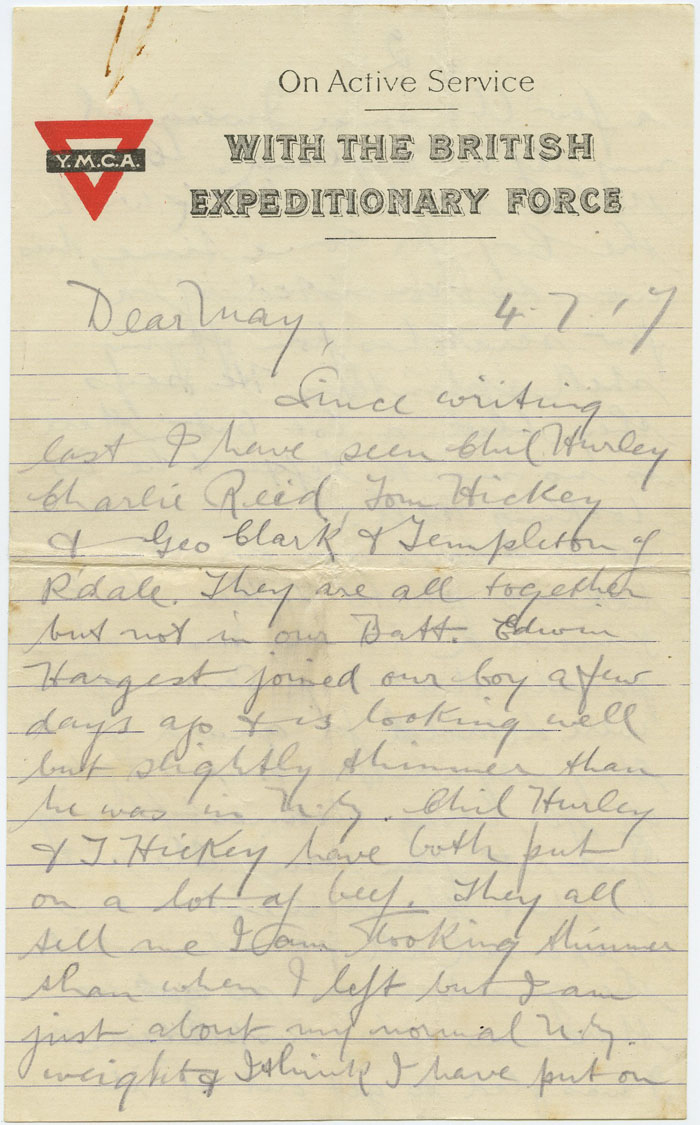 On Active Service
WITH THE BRITISH
EXPEDITIONARY FORCE
Y.M.C.A.
Dear May, 4.7.17
Since writing
last I have seen Phil Hurley
Charlie Reid, Tom Hickey
& Geo Clark & Templeton of
R'dale. They are all together
but not in our Batt. Edwin
Hargest joined our boy a few
days ago & is looking well
but slightly thinner than
he was in N.Z. Phil Hurley
& T. Hickey have both put
on a lot of beef. They all
tell me I am looking thinner
than when I left but I am
just about my normal N.Z.
weight & I think I have put on